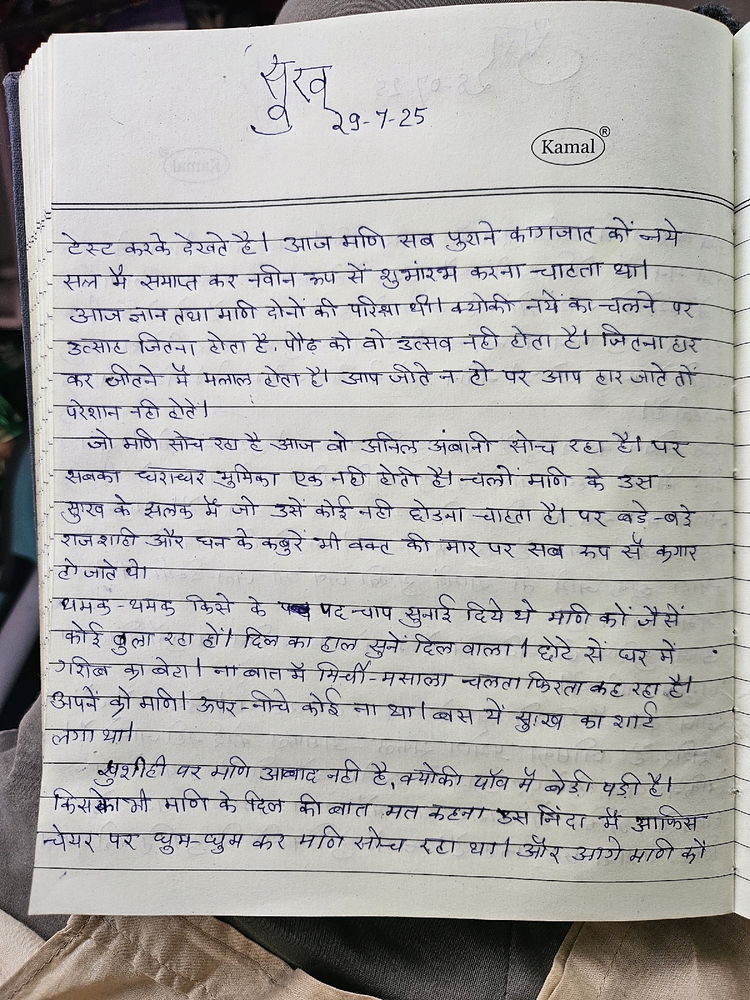 सुख
29-7-25
Kamal®
टेस्ट करके देखते है। आज मणि सब पुराने कागजात कों नये
सल मै समाप्त कर नवीन रूप सें शुभांरभ करना चाहता था।
आज ज्ञान तथा मणि दोनों की परिक्षा थी। क्योकी नयें का चलने पर
उत्साह जितना होता है, पौढ़ को वो उत्सव नही होता है। जितना हार
कर जीतने मैं मलाल होता है। आप जीते न हो पर आप हार जाते तों
परेशान नही होतें।
जो मणि सोच रहा है आज वो अनिल अंबानी सोच रहा है। पर
सबका धराधर भुमिका एक नही होती है। चलों मणि के उस
सुःख के झलक मैं जो उसें कोई नही छोडना चाहता है। पर बडे-बडे
राजशाही और धन के कबुरे भी वक्त की मार पर सब रूप सें कगार
हो जाते थे।
थमक-थमक किसे के पद चाप सुनाई दिये थे मणि कों जैसें
कोई बुला रहा हों। दिल का हाल सुनें दिल वाला। छोटे सें घर में
गरीब का बेटा। ना बात मैं मिर्ची-मसाला चलता फिरता कह रहा है।
अपनें को मणि। ऊपर-नीचे कोई ना था। बस यें सुःख का शार्ट
लगा था।
खुशी ही पर मणि आबाद नही है, क्योकी पॉव मैं बेड़ी पड़ी है।
किसको भी मणि के दिल की बात मत कहना उस निंदा मैं आफिस
चेयर पर घुम-घुम कर मणि सोच रहा था। और आगे मणि कों